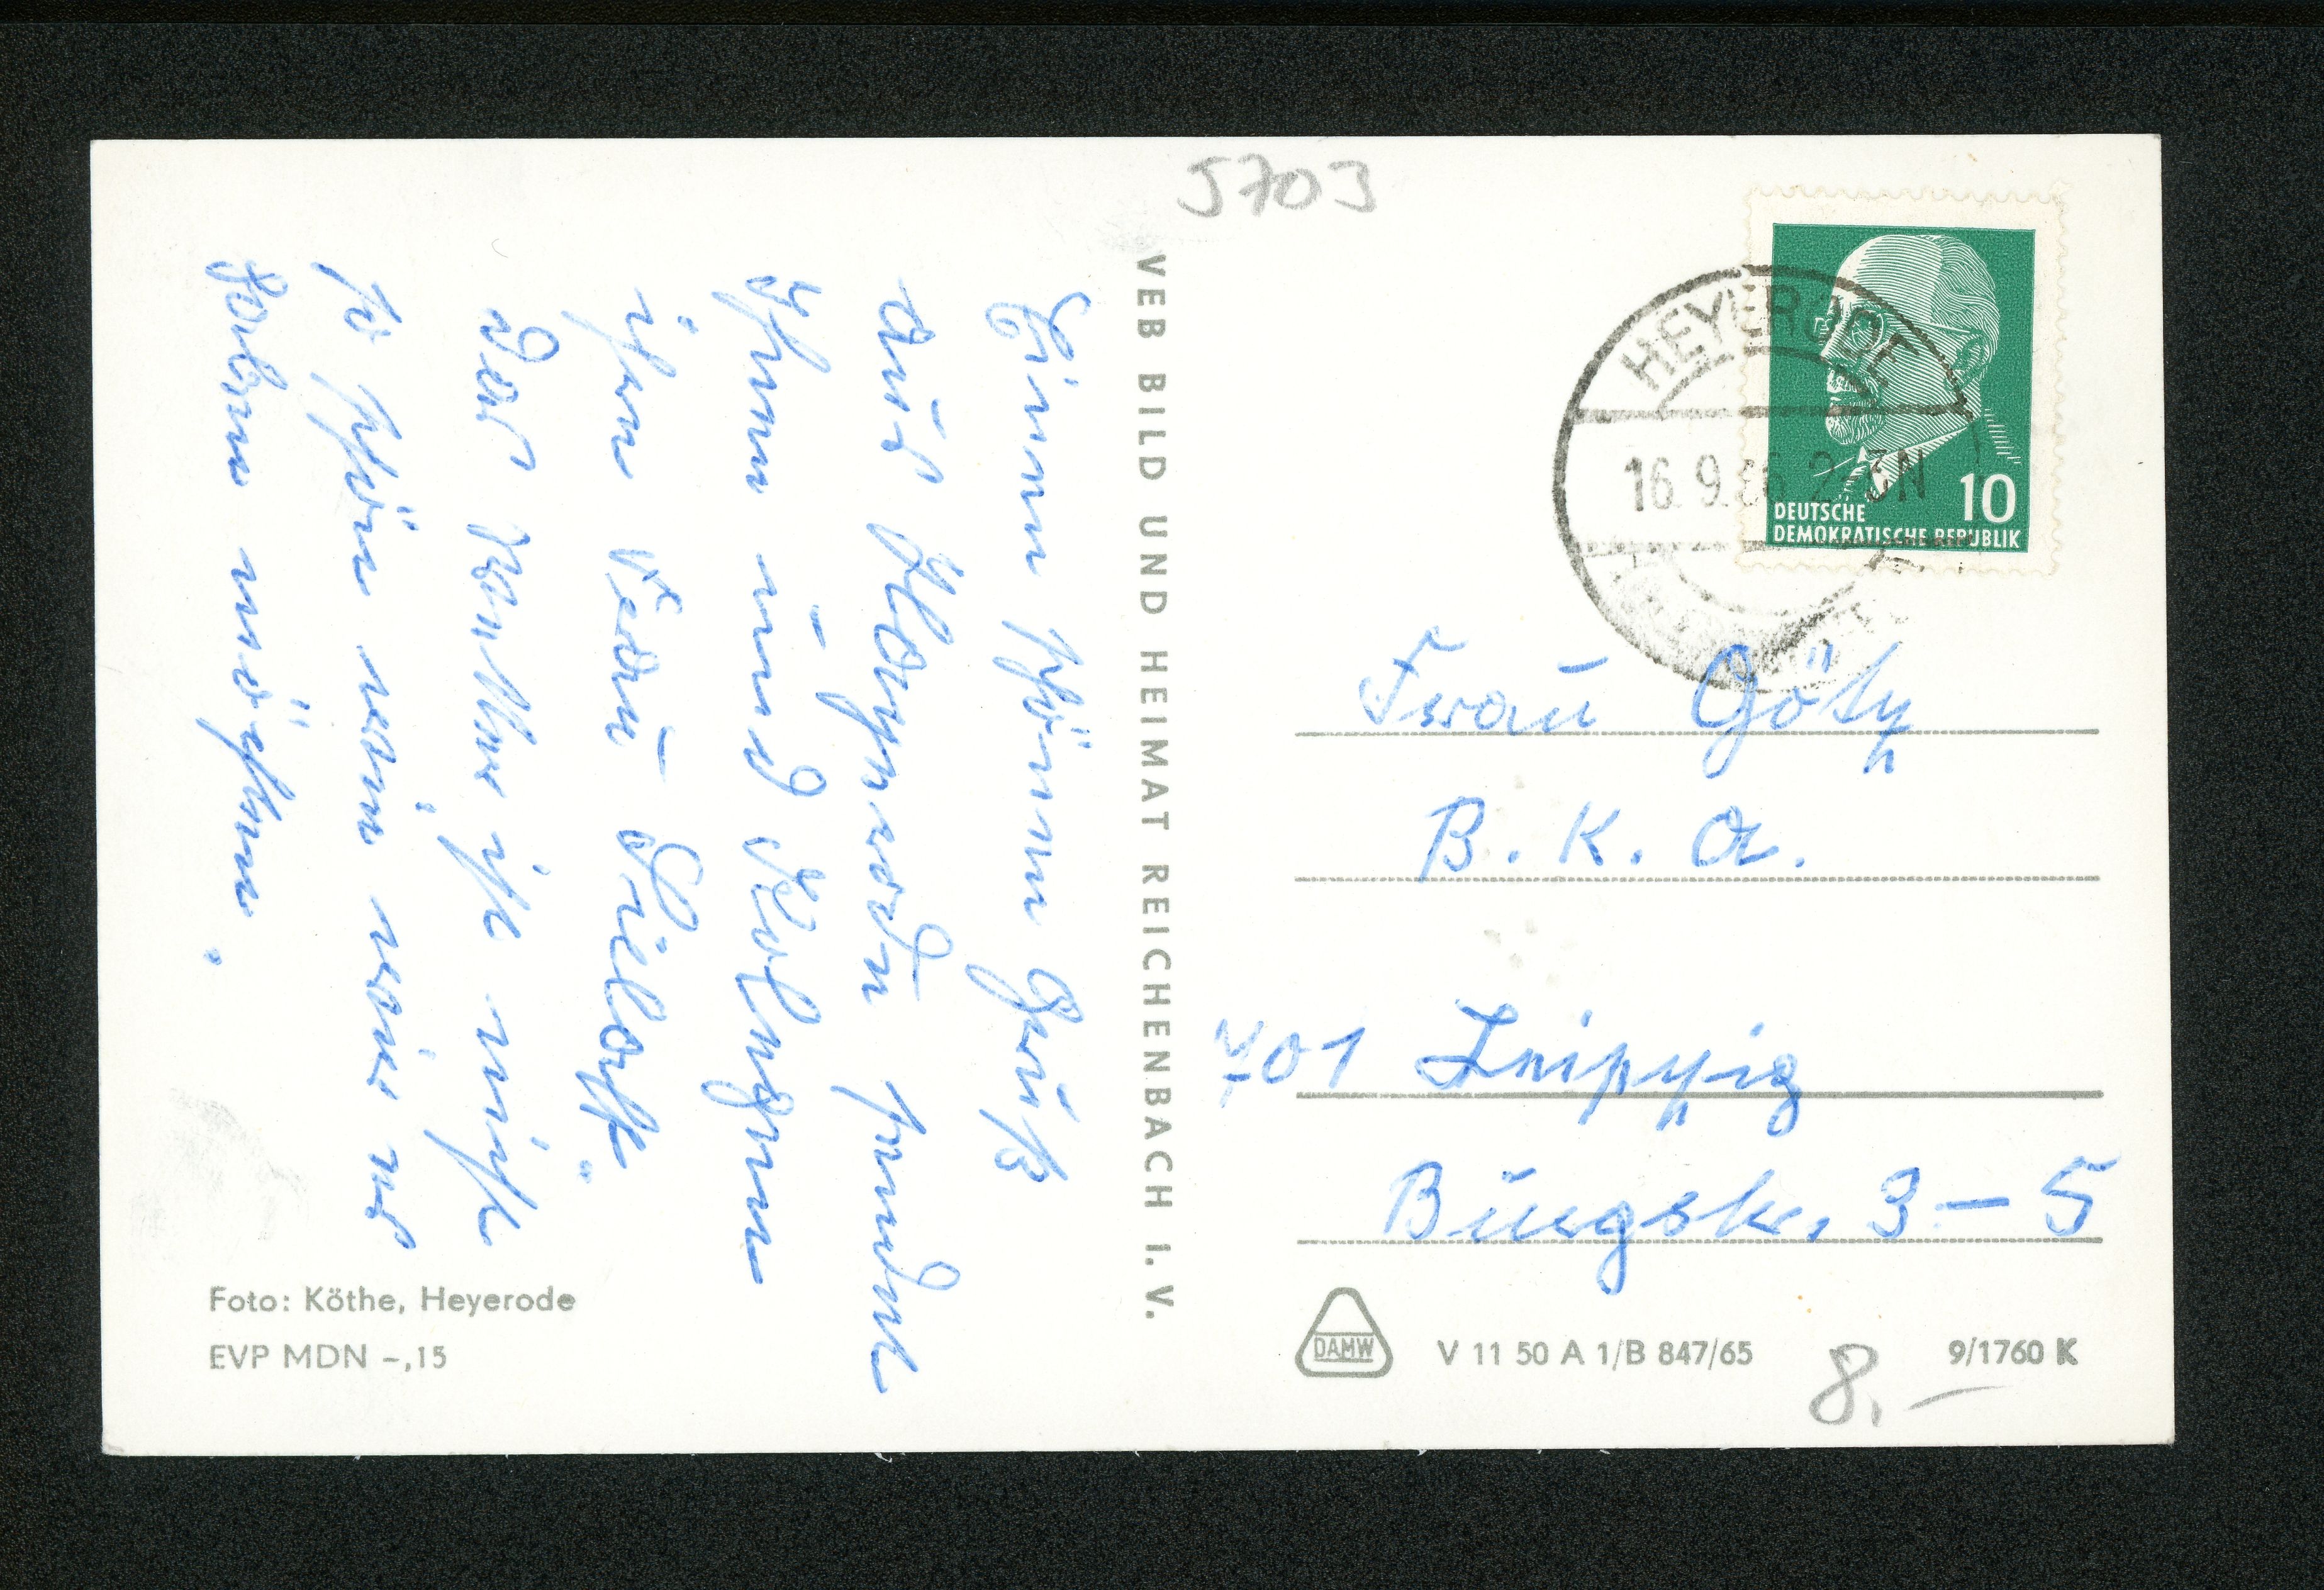 5703
HEYERODE
16.9.66
10
DEUTSCHE
DEMOKRATISCHE REPUBLIK
Einen schönen Gruß
aus Heyerode senden
Ihnen und Kolegen
Frau
Das Wetter ist nicht
so schön wir es
haben möchten.
VEB BILD UND HEIMAT REICHENBACH I. V.
Frau Götz
B. K. A.
701 Leipzig
Burgstr. 3-5
Foto: Köthe, Heyerode
EVP MDN -,15
DAMW
V 11 50 A 1/B 847/65
9/1760 K
8,-